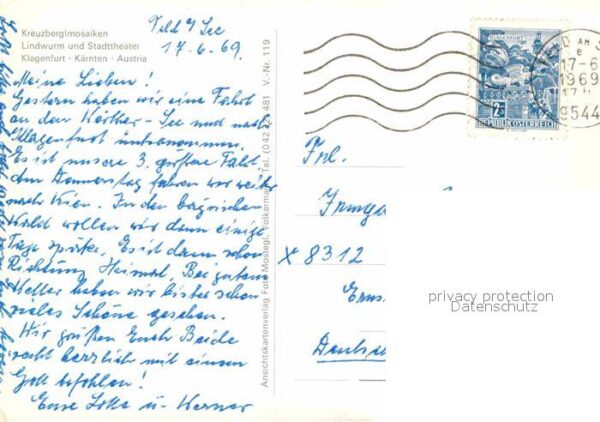 Kreuzberglmosaiken
Lindwurm und Stadttheater
Klagenfurt · Kärnten · Austria
V.-Nr. 119
Feld a/ See
17.6.69.
Meine Lieben!
Gestern haben wir eine Fahrt
an den Wörther-See und nach
Klagenfurt unternommen.
Es ist unsere 3. größere Fahrt,
am Donnerstag fahren wir weiter
nach Wien. In den bayrischen
Wald wollen wir dann einige
Tage später. Es ist dann schon
Richtung Heimat. Bei gutem
Wetter haben wir bisher schon
vieles Schöne gesehen.
Wir grüßen Euch Beide
recht herzlich mit einem
Gott befohlen!
Eure Lotte u. Werner
Ansichtskartenverlag Foto Mostegl, Völkermarkt, Tel.
481
KLAGENFURT
REPUBLIK ÖSTERREICH
FELD AM
e
17-6
1969
17h
9544
Frl.
X 8312
privacy protection
Datenschutz